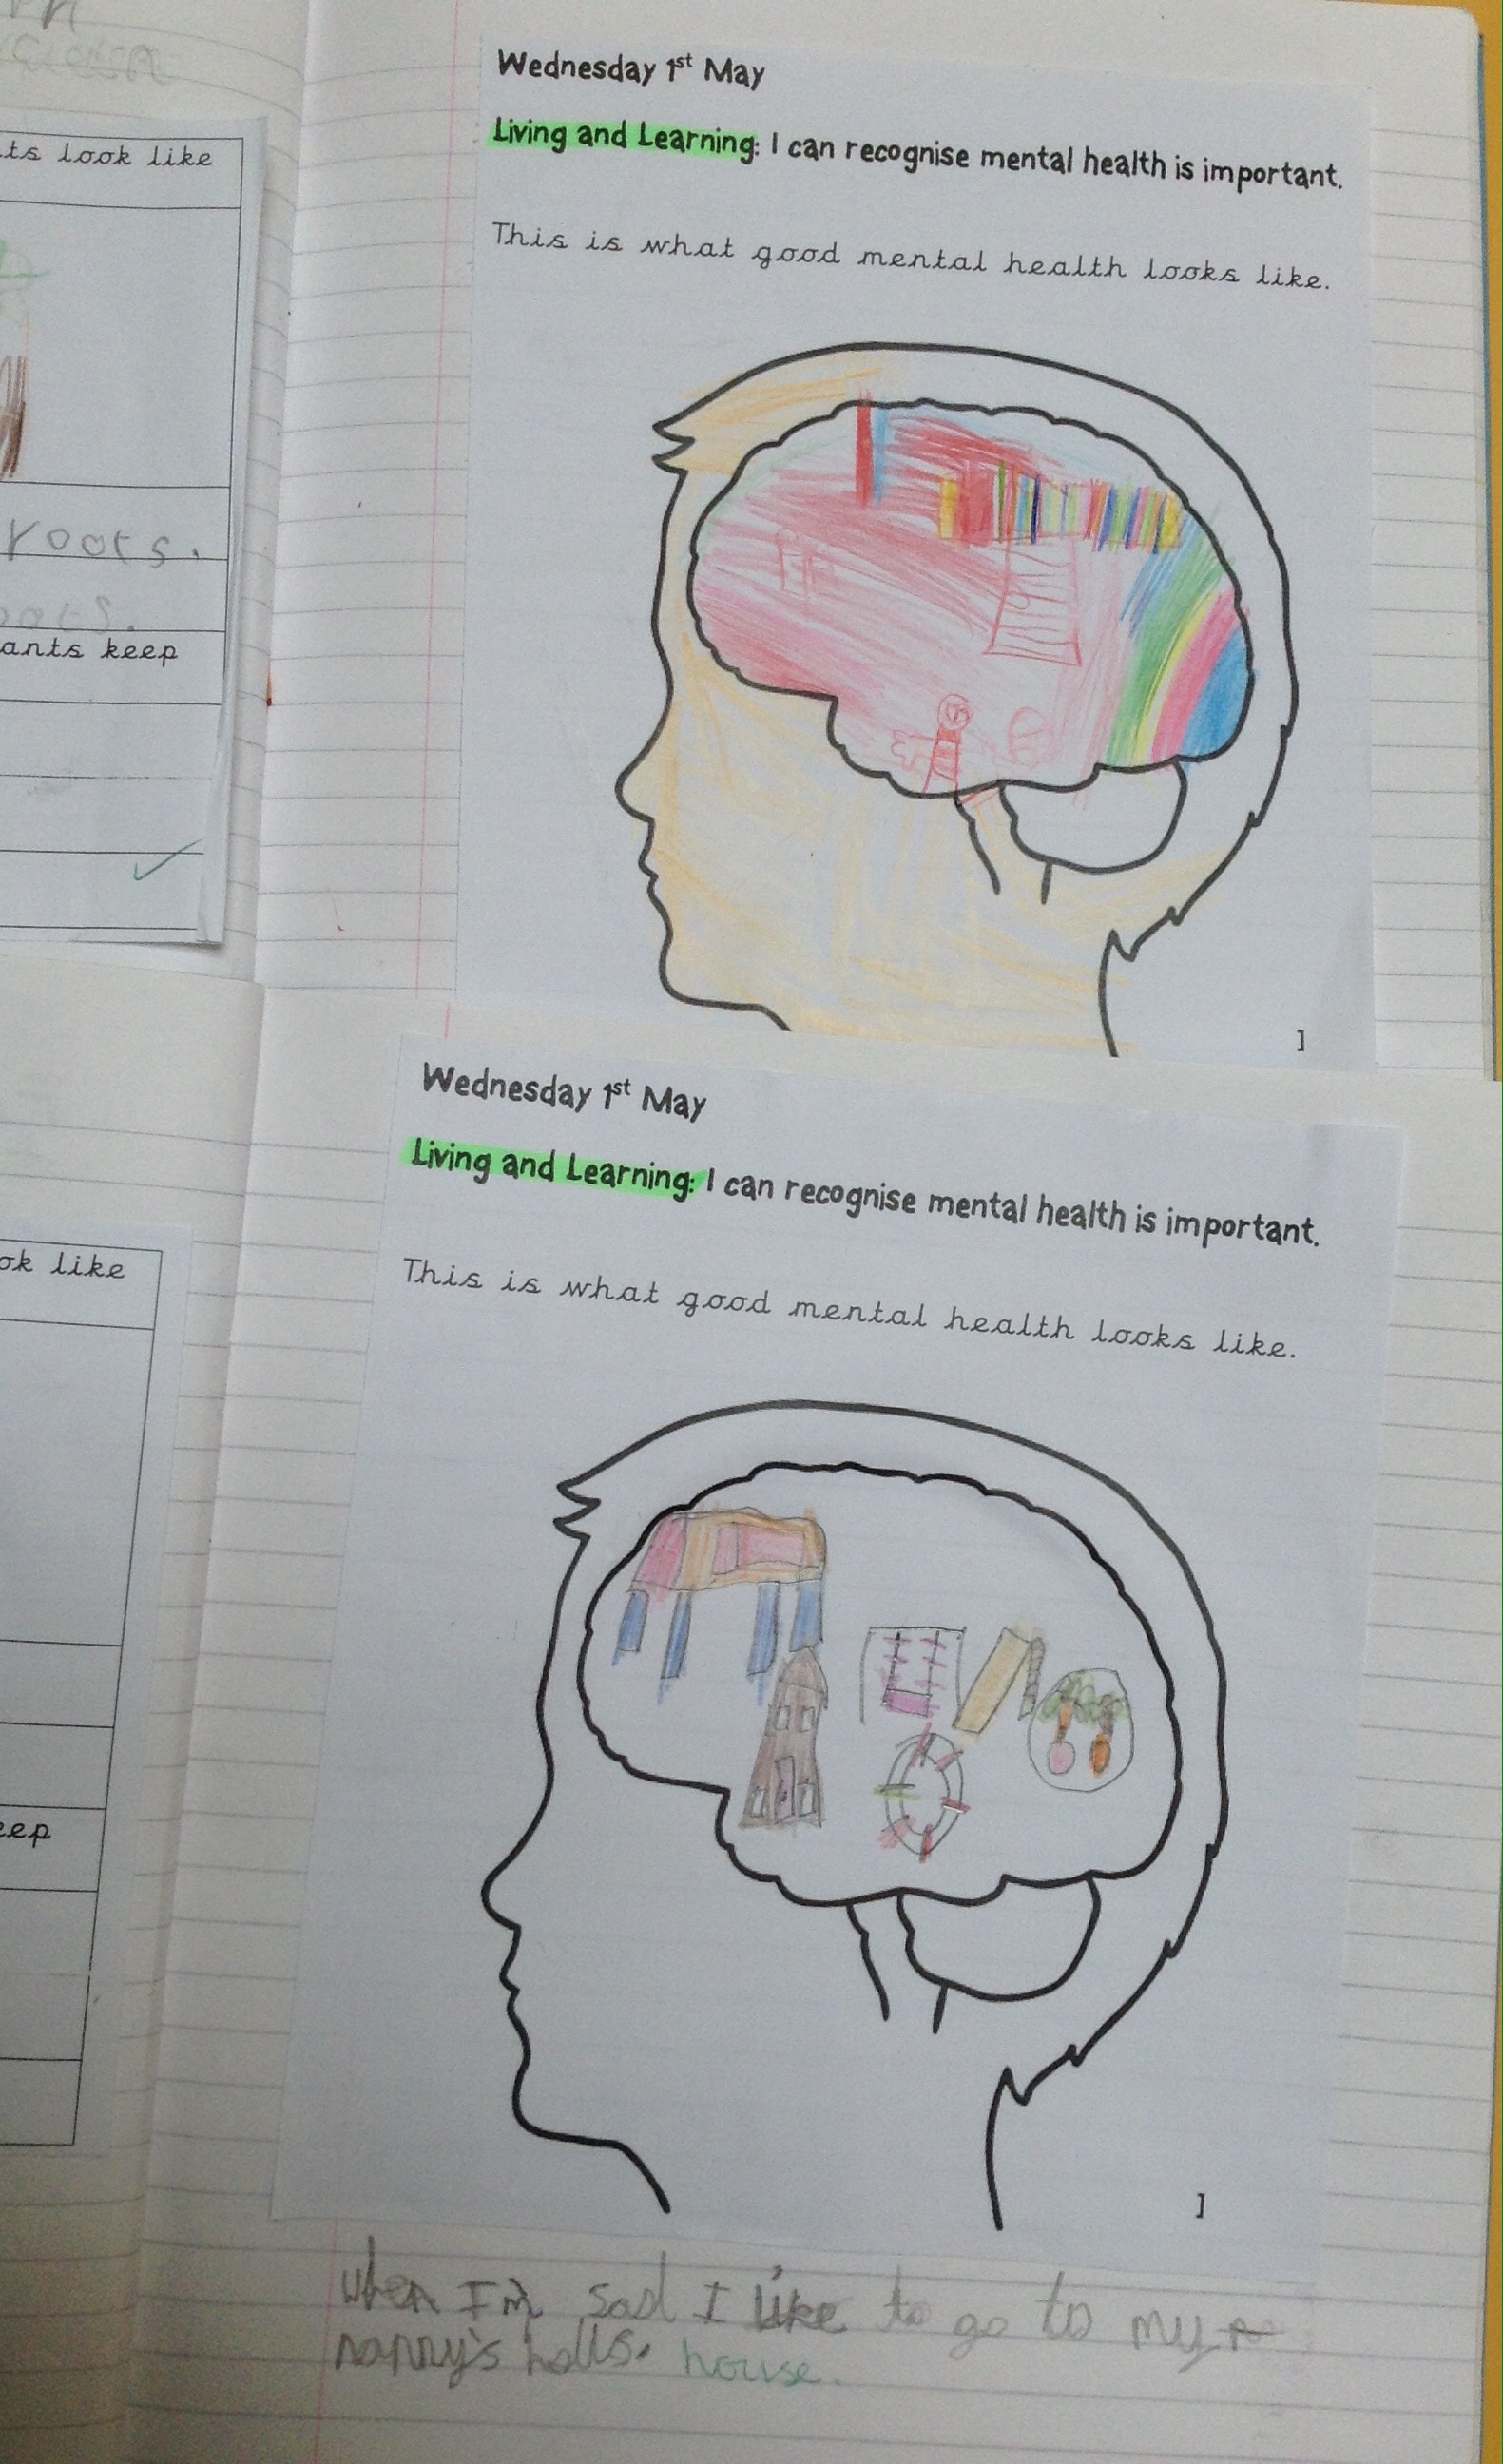 ts look like
roots.
ants keep
Wednesday 1st May
Living and Learning: I can recognise mental health is important.
This is what good mental health looks like.
]
ok like
eep
Wednesday 1st May
Living and Learning: I can recognise mental health is important.
This is what good mental health looks like.
]
when I'm sad I like to go to my
nanny's holls. house.